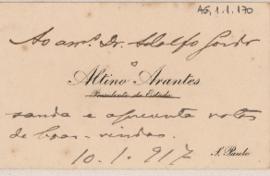 AG, 1.1.170
Ao am.º Dr. Adolfo Gordo
o
Altino Arantes
Presidente do Estado
saúda e apresenta votos
de boas-vindas.
10.1.917
S. Paulo